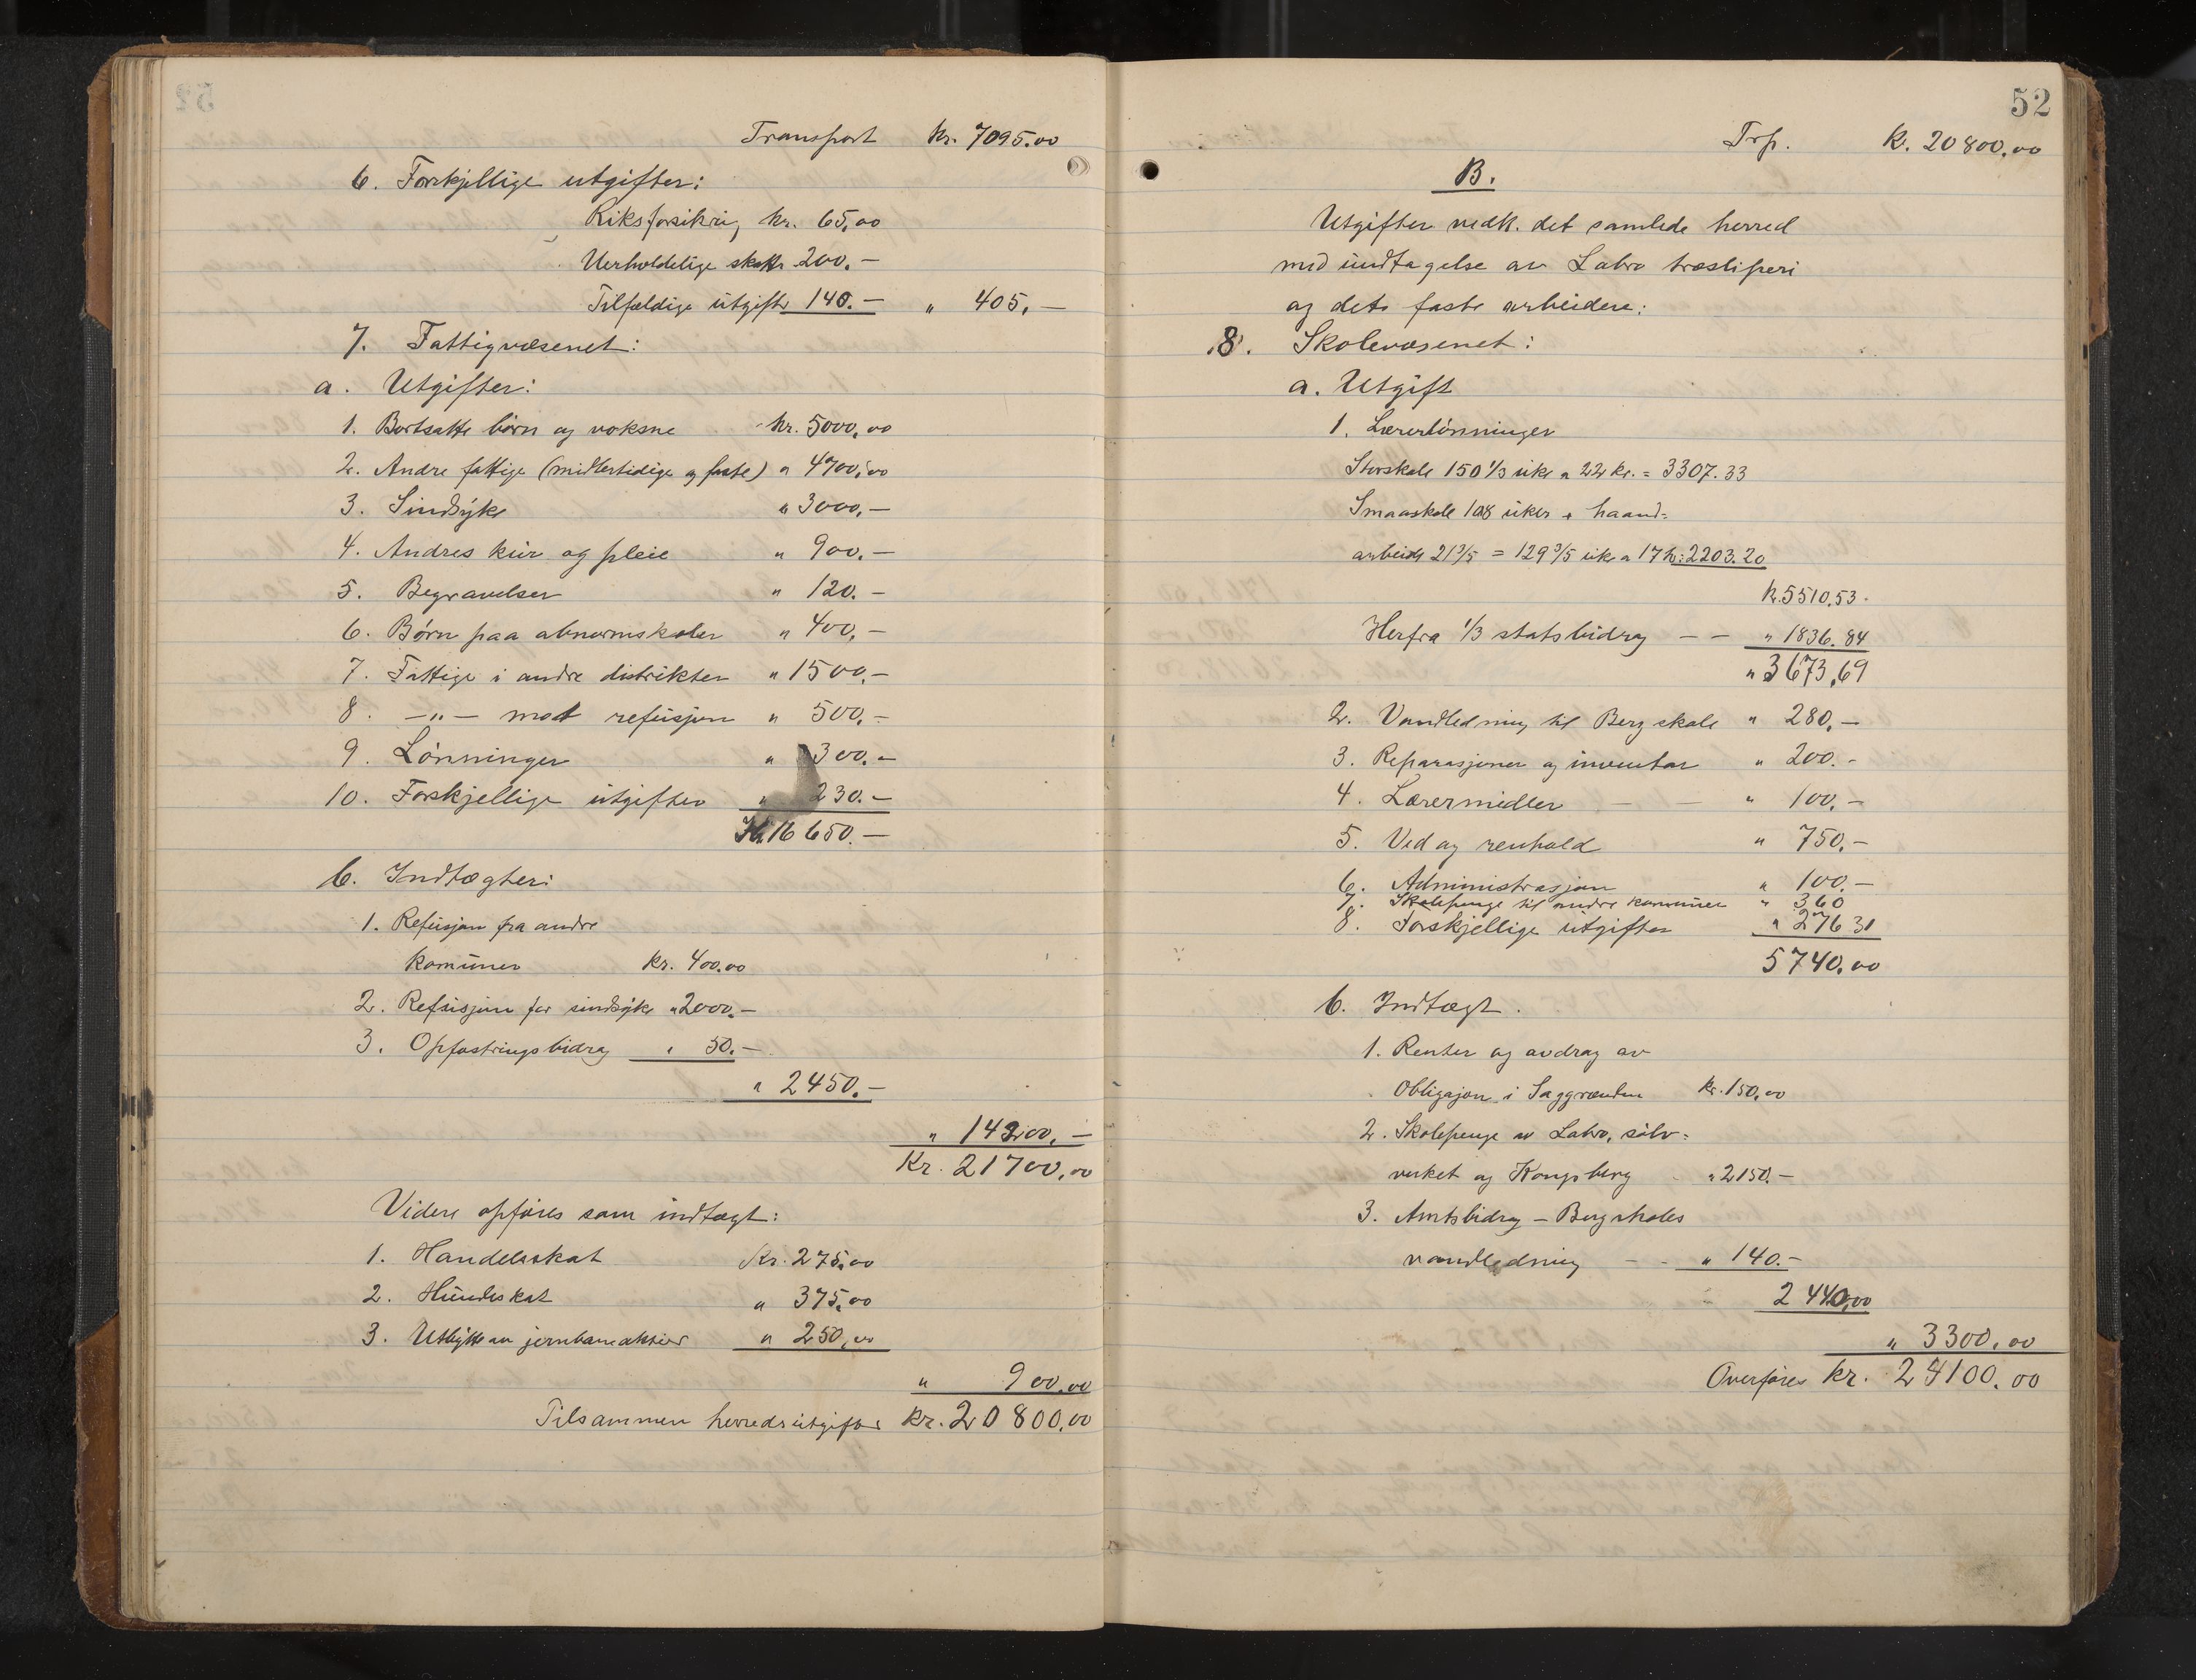 Transport kr. 7095.00
6. Forskjellige utgifter:
Riksforsikring kr. 65,00
Uerholdelige skatter 200.—
Tilfældige utgifter 140.— " 405.—
7. Fattigvæsenet:
a. Utgifter:
1. Bortsatte børn og voksne kr. 5000,00
2. Andre fattige (midlertidige og faste) " 4700,00
3. Sindsyke " 3000,—
4. Andres kur og pleie " 900.—
5. Begravelser " 120.—
6. Børn paa abnormskoler " 400,—
7. Fattige i andre distrikter " 1500,—
8. —"— mot refusjon " 500,—
9. Lønninger " 300.—
10. Forskjellige utgifter " 230.—
Kr. 16 650.—
b. Indtægter:
1. Refusjon fra andre
komuner kr. 400.00
2. Refusjon for sindsyke " 2000.—
3. Opfostringsbidrag " 50.—
" 2450.—
" 14200.—
Kr. 21700,00
Videre opføres som indtægt:
1. Handelsskat Kr. 275,00
2. Hundeskat " 375,00
3. Utbytte av jernbaneaktier " 250,00
" 900.00
Tilsammen herredsutgifter kr. 20800,00
52
Trp. k. 20800,00
B.
Utgifter vedk. det samlede herred
med undtagelse av Labro træsliperi
og dets faste arbeidere:
8. Skolevæsenet:
a. Utgift
1. Lærerlønninger
Storskole 150 1/3 uke a 22 kr. = 3307.33
Smaaskole 108 uker + haand=
arbeide 21 3/5 = 129 3/5 uke a 17 kr: 2203.20
k. 5510,53.
Herfra 1/3 statsbidrag — — " 1836.84
" 3673,69
2. Vandledning til Berg skole " 280,—
3. Reparasjoner og inventar " 200.—
4. Lærermidler — — " 100,—
5. Ved og renhold " 750,—
6. Administrasjon " 100.—
7. Skolepenge til andre kommuner " 360
8. Forskjellige utgifter " 276 31
5740,00
b. Indtægt.
1. Renter og avdrag av
Obligasjon i Saggrenden kr. 150,00
2. Skolepenge av Labro, sølv=
verket og Kongsberg " 2150.—
3. Amtsbidrag — Bergskoles
vandledning — - " 140.—
2 440,00
" 3300,00
Overføres kr. 24100.00